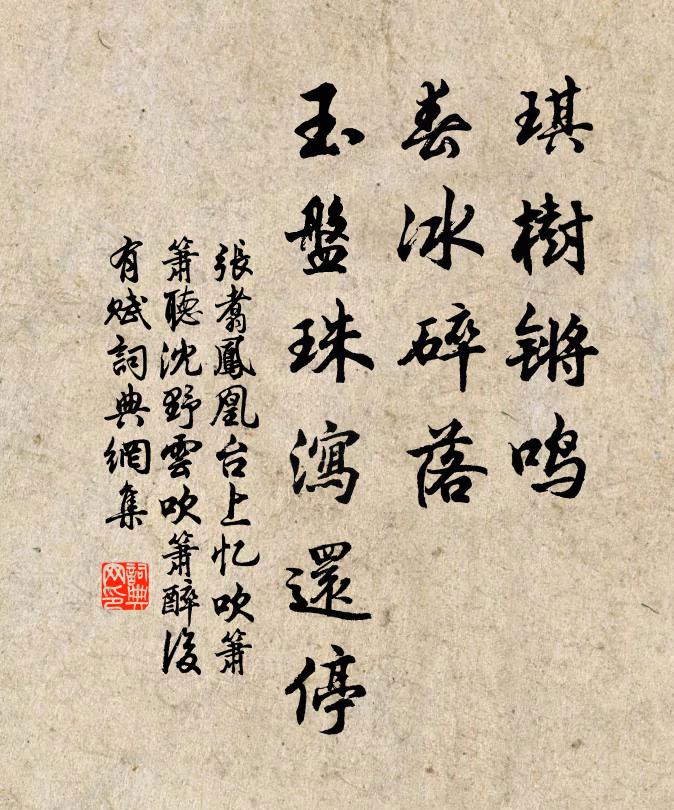 琪樹锵鳴
春冰碎落
玉盤珠瀉還停
張翥鳳凰台上忆吹箫
簫聽沈野雲吹簫醉後
有赋詞典網集
詞典網印